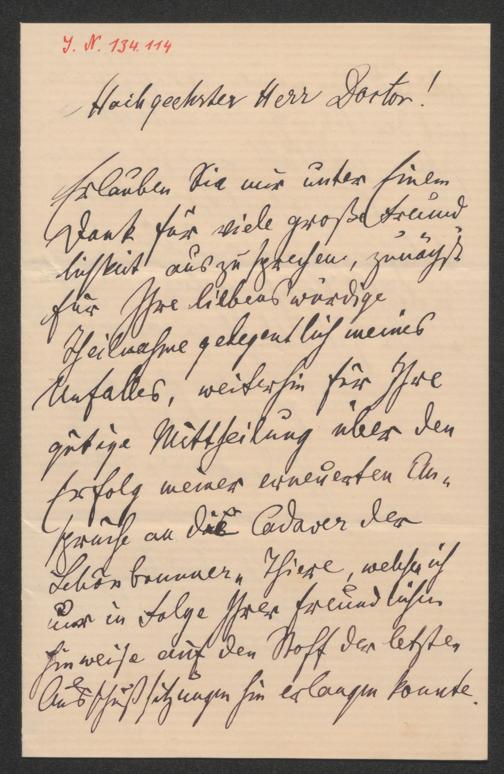 J. N. 134.114
Hochgeehrter Herr Doctor!
Erlauben Sie mir unter Einem
Dank für viele große Freund
lichkeit auszusprechen, zunächst
für Ihre liebenswürdige
Theilnahme gelegentlich meines
Unfalles, weiterhin für Ihre
gütige Mittheilung über den
Erfolg meiner erneuerten An-
sprüche an die Cadaver der
Schönbrunner- Thiere, welche ich
nur in Folge Ihrer freundlichen
Hinweise auf den Stoff der letzten
Ausschußsitzungen hin erlangen konnte.